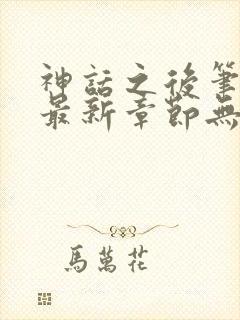 神話之後筆
最新章節無
馬萬花